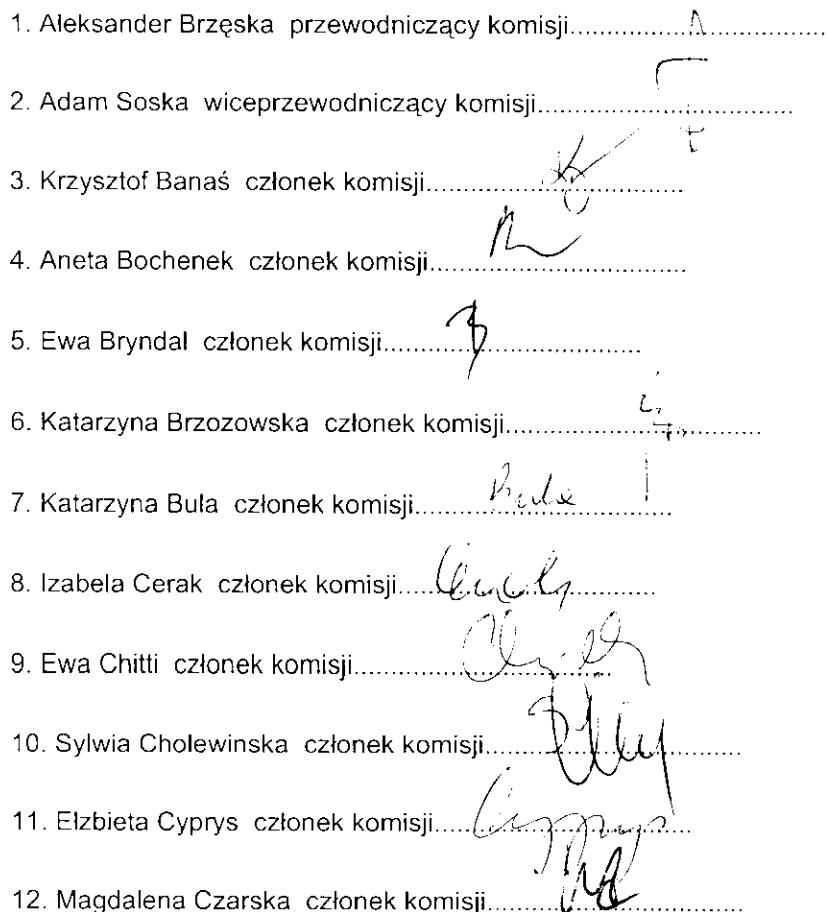 1. Aleksander Brzęska  przewodniczący komisji..............................................
2. Adam Soska  wiceprzewodniczący komisji..............................................
3. Krzysztof Banaś  członek komisji..............................................
4. Aneta Bochenek  członek komisji..............................................
5. Ewa Bryndal  członek komisji..............................................
6. Katarzyna Brzozowska  członek komisji..............................................
7. Katarzyna Bula  członek komisji..............................................
8. Izabela Cerak  członek komisji..............................................
9. Ewa Chitti  członek komisji..............................................
10. Sylwia Cholewinska  członek komisji..............................................
11. Elzbieta Cyprys  członek komisji..............................................
12. Magdalena Czarska  członek komisji..............................................